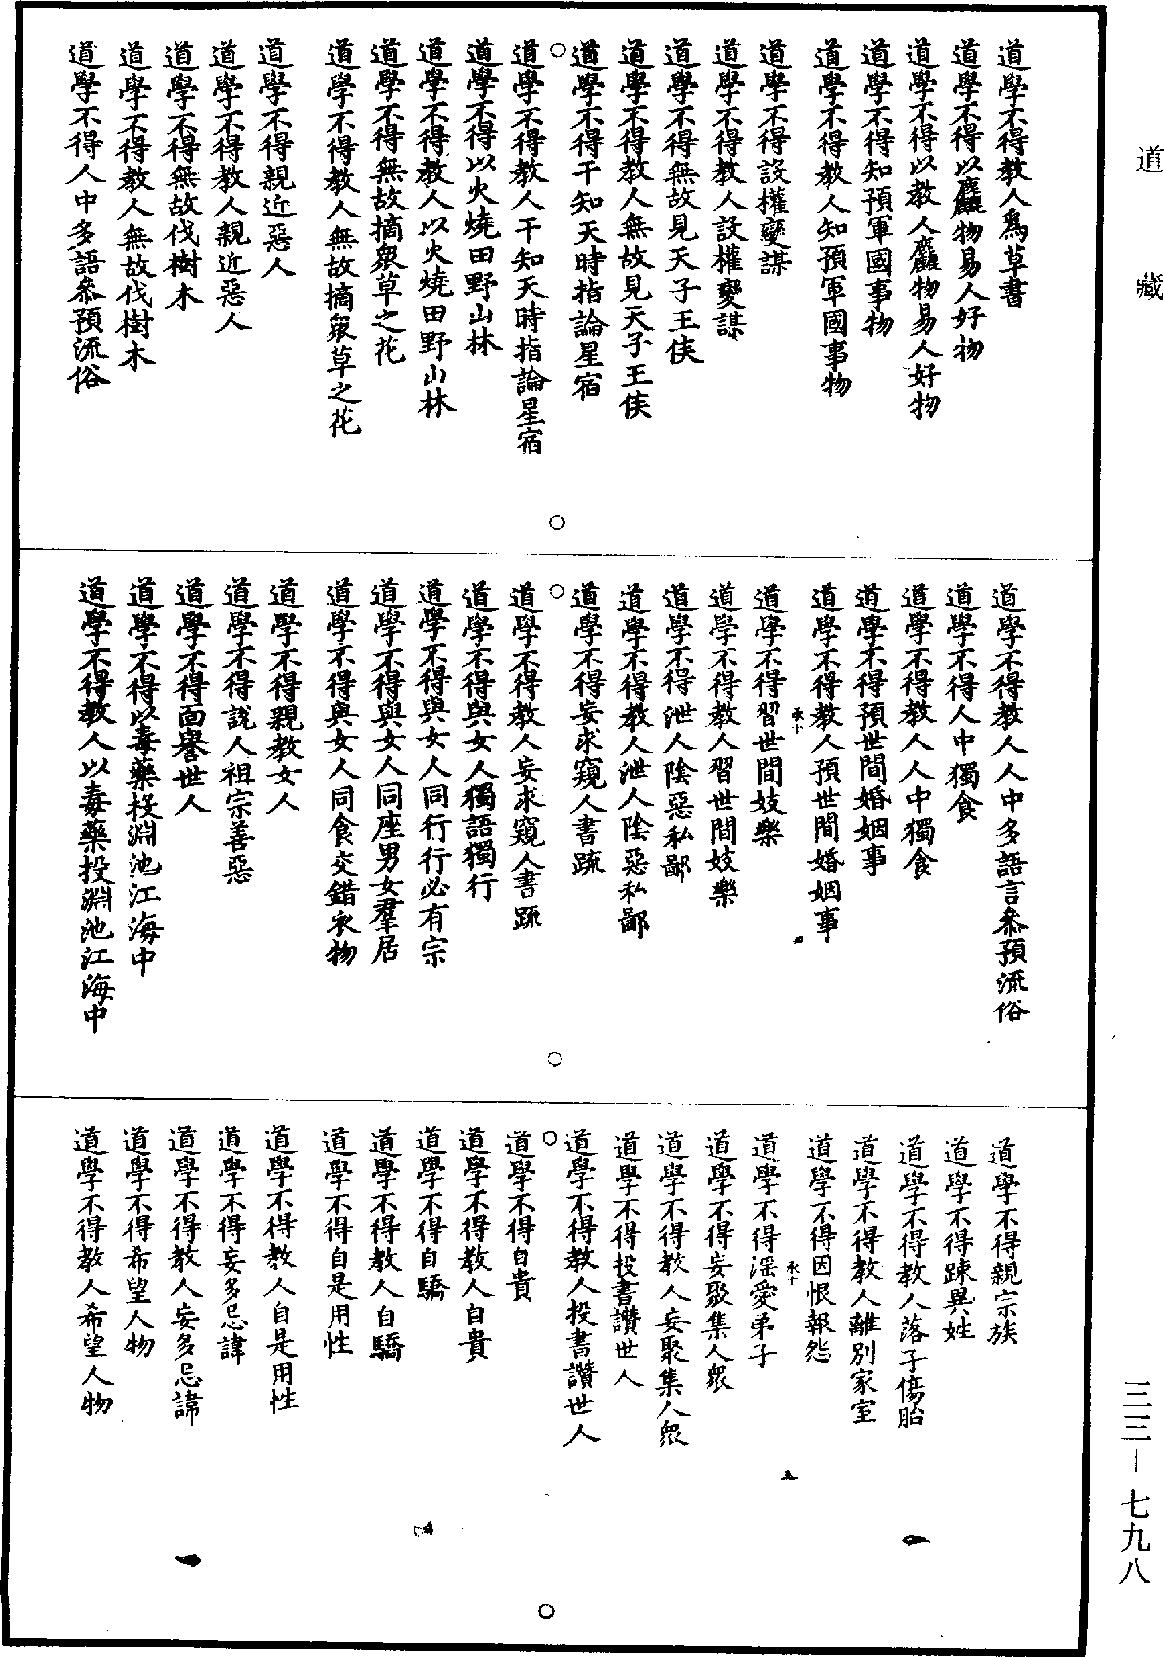 道藏
道學不得教人為草書
道學不得以麤物易人好物
道學不得以教人麤物易人好物
道學不得知預軍國事物
道學不得教人知預軍國事物
道學不得設權變謀
道學不得教人設權變謀
道學不得無故見天子王侯
道學不得教人無故見天子王侯
道學不得干知天時指論星宿
道學不得教人干知天時指論星宿
道學不得以火燒田野山林
道學不得教人以火燒田野山林
道學不得無故摘衆草之花
道學不得教人無故摘衆草之花
道學不得親近惡人
道學不得教人親近惡人
道學不得無故伐樹木
道學不得教人無故伐樹木
道學不得人中多語叅預流俗
道學不得教人人中多語言叅預流俗
道學不得人中獨食
道學不得教人人中獨食
道學不得預世間婚姻事
道學不得教人預世間婚姻事
道學不得習世間妓樂
道學不得教人習世間妓樂
道學不得泄人陰惡私鄙
道學不得教人泄人陰惡私鄙
道學不得妄求窺人書疏
道學不得教人妄求窺人書疏
道學不得與女人獨語獨行
道學不得與女人同行行必有宗
道學不得與女人同座男女羣居
道學不得與女人同食交錯衣物
道學不得親教女人
道學不得說人祖宗善惡
道學不得面譽世人
道學不得以毒藥投淵池江海中
道學不得教人以毒藥投淵池江海中
道學不得親宗族
道學不得踈異姓
道學不得教人落子傷胎
道學不得教人離別家室
道學不得因恨報怨
道學不得滛愛弟子
道學不得妄聚集人衆
道學不得教人妄聚集人衆
道學不得投書讚世人
道學不得教人投書讚世人
道學不得自貴
道學不得教人自貴
道學不得自驕
道學不得教人自驕
道學不得自是用性
道學不得教人自是用性
道學不得妄多忌諱
道學不得教人妄多忌諱
道學不得希望人物
道學不得教人希望人物
三三—七九八